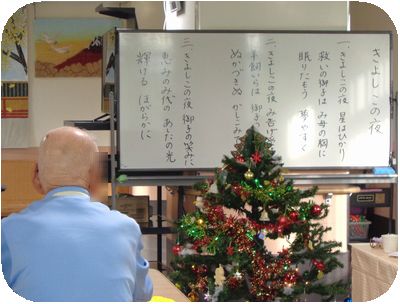 きよしこの夜
一、きよしこの夜 星はひかり
救いの御子は み母の胸に
眠りたもう 夢やすく
二、きよしこの夜 み告げ
牧人らは 御子の
ぬかづきぬ かしこみ
三、きよしこの夜 御子の笑みに
恵みのみ代の あしたの光
輝けり ほがらかに